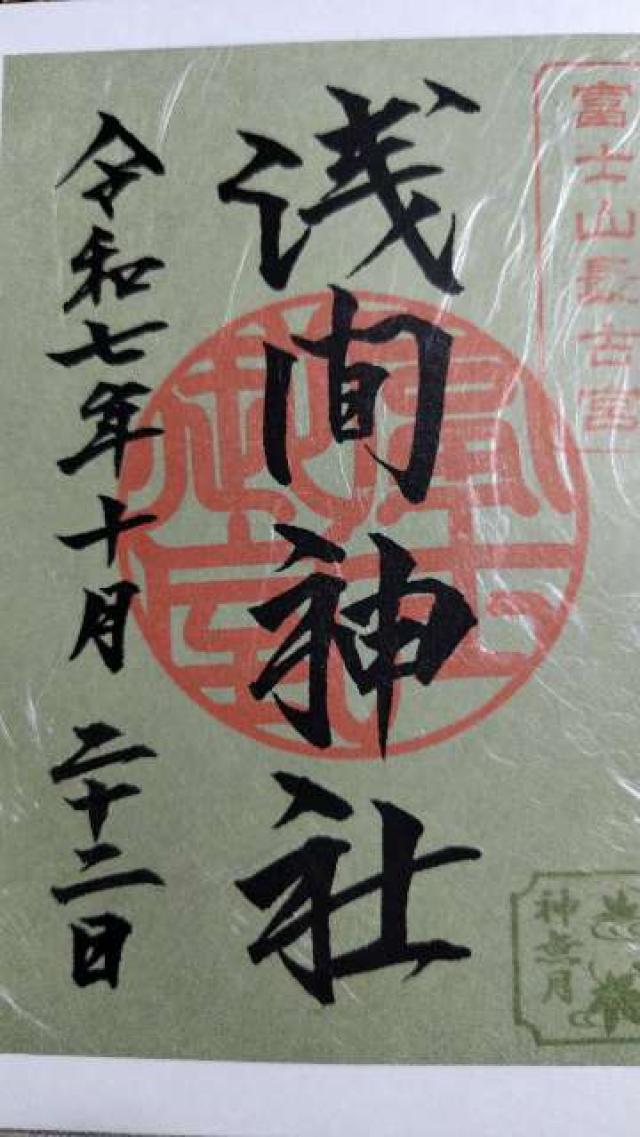 富士山最古宮
浅间神社
令和七年十月二十二日
神無月